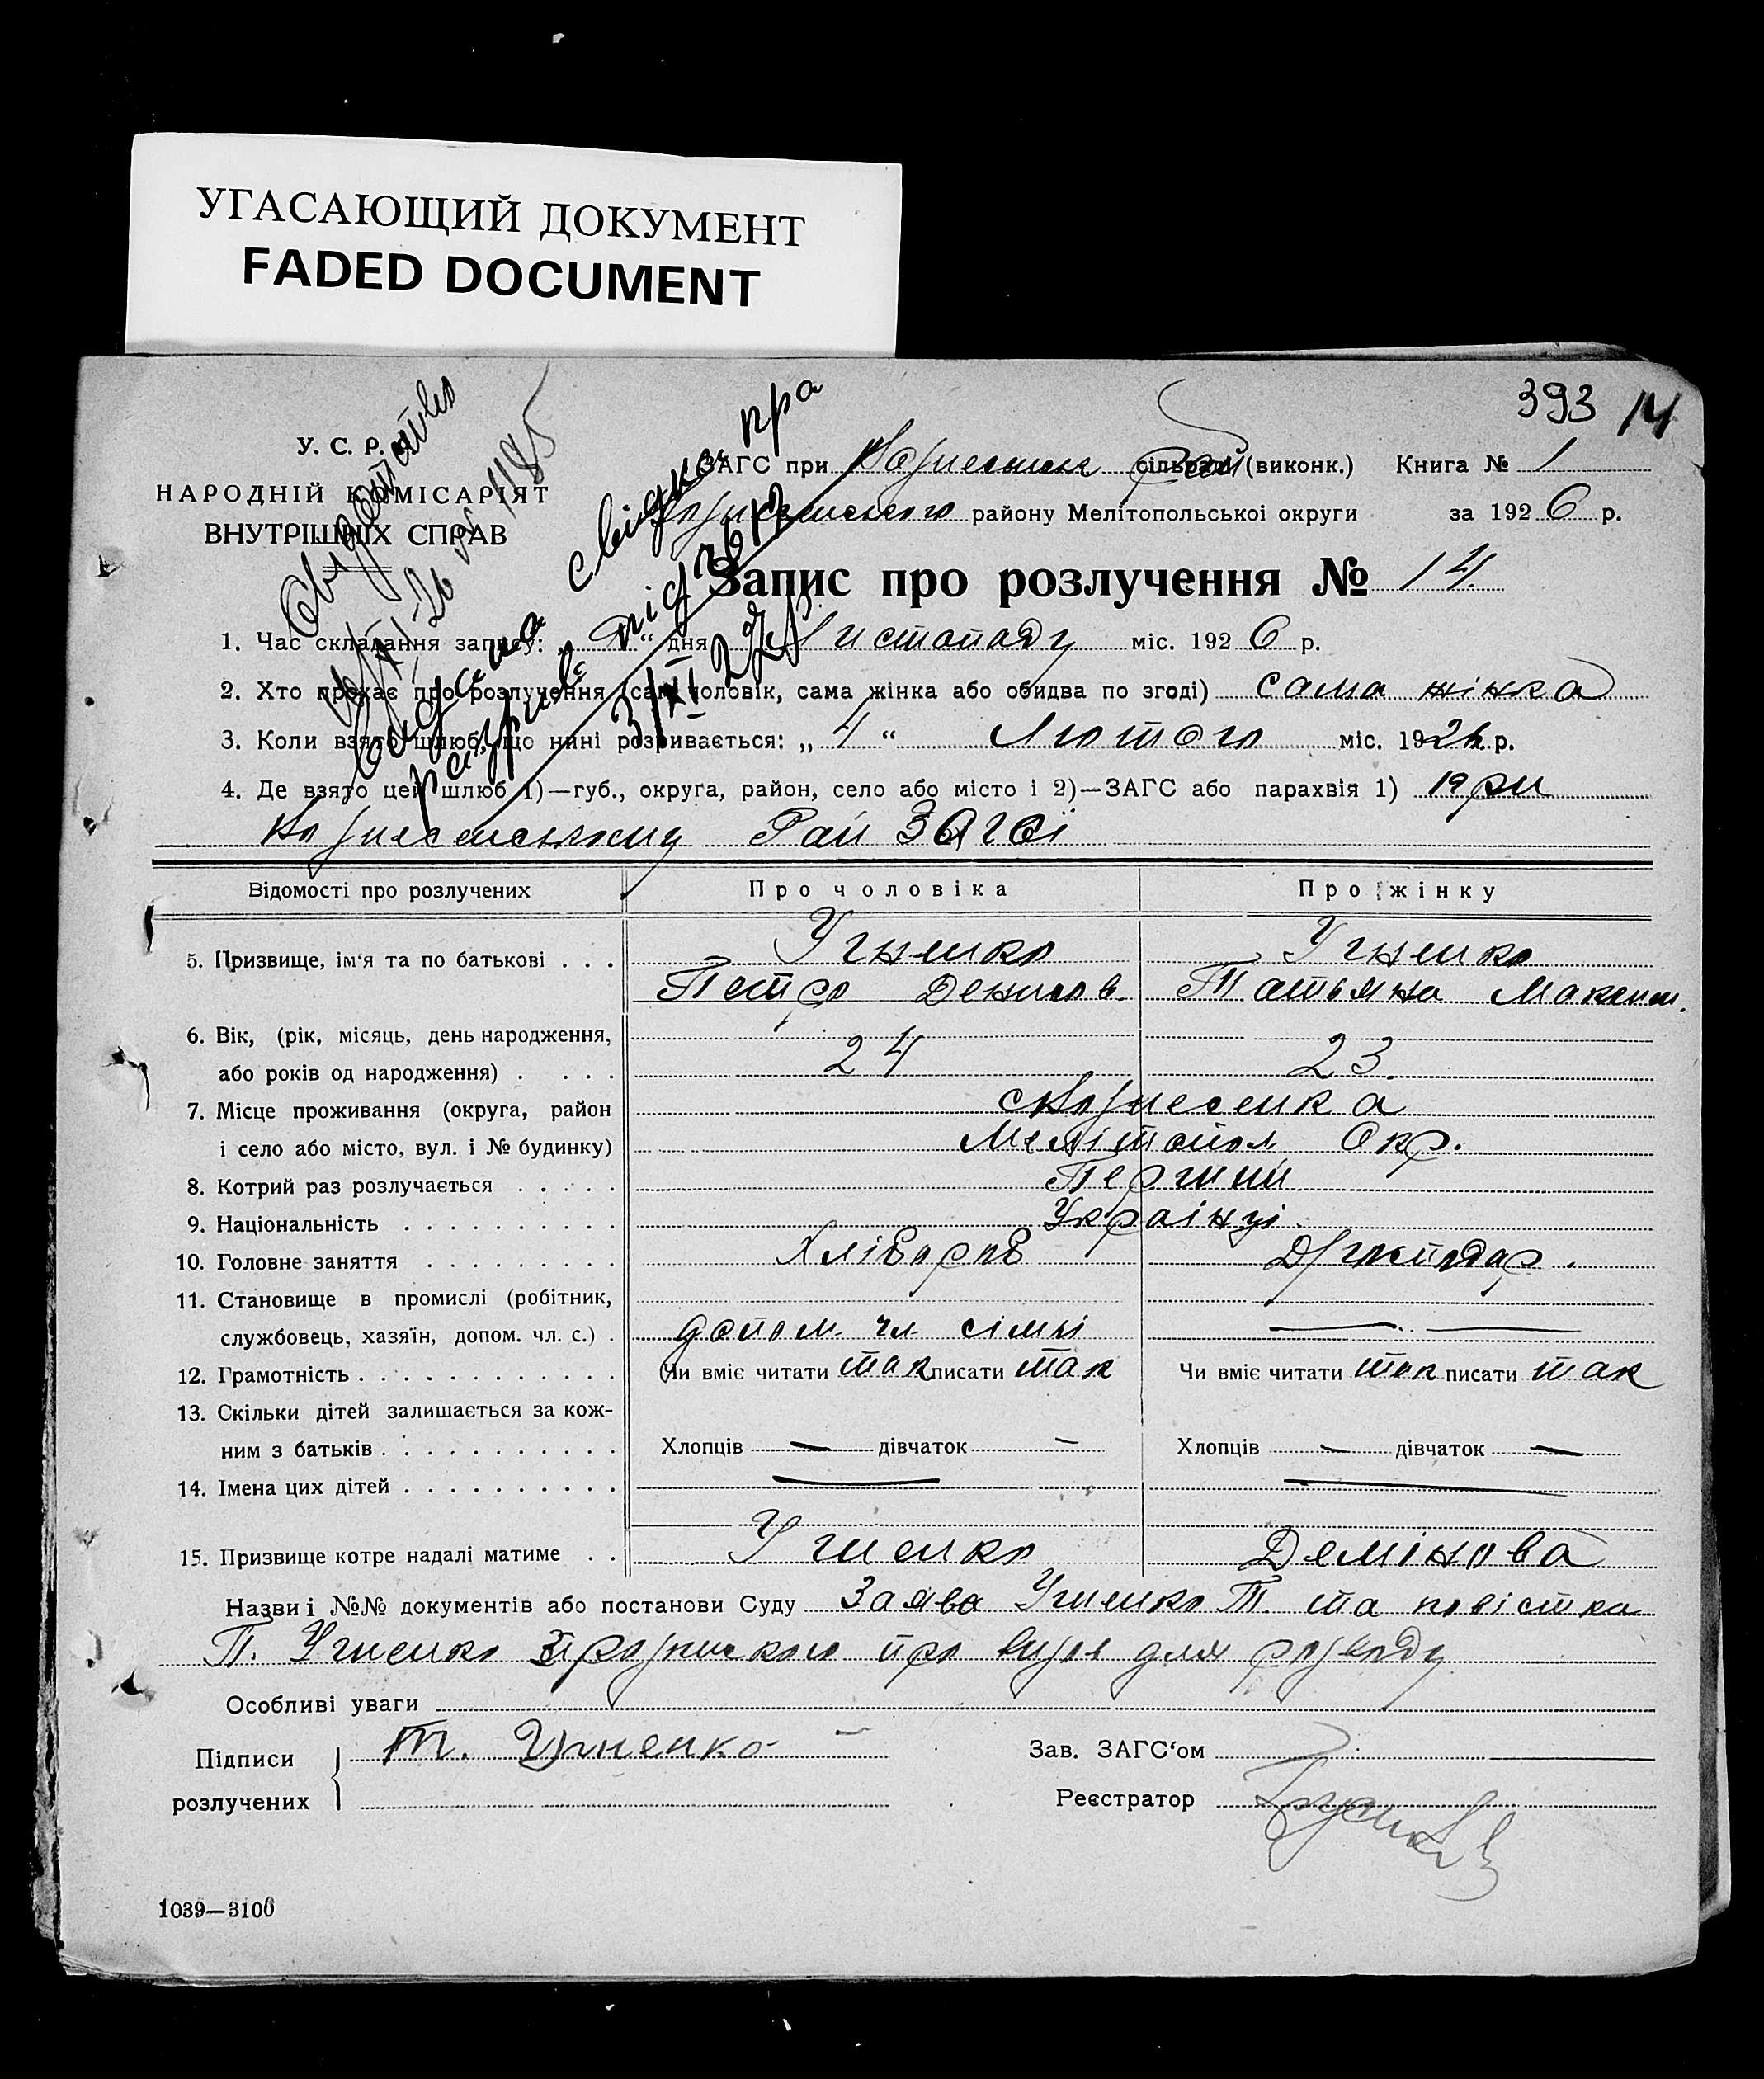 УГАСАЮЩИЙ ДОКУМЕНТ
FADED DOCUMENT
393 14
У. С. Р. Р.
НАРОДНІЙ КОМІСАРІЯТ
ВНУТРІШНІХ СПРАВ
ЗАГС при сільради (виконк.) Книга № 1
району Мелітопольськоі округи за 1926 р.
Запис про розлучення № 14.
1. Час складання запису: „ “ дня Листопаду міс. 1926 р.
2. Хто прохає про розлучення (сам чоловік, сама жінка або обидва по згоді) сама жінка
3. Коли взято шлюб, що нині розривається: „4“ Лютого міс. 1926 р.
4. Де взято цей шлюб 1)—губ., округа, район, село або місто і 2)—ЗАГС або парахвія 1) при
Вознесенському Рай ЗАГСі
Свідоцтво
№ 1185
видана свідка пра
розрив під
Відомості про розлучених
Про чоловіка
Про жінку
5. Призвище, ім‘я та по батькові . . . Угненко Угненко
Петро Денисов Татьяна Максим.
6. Вік, (рік, місяць, день народження,
або років од народження) . . . . 24 23.
7. Місце проживання (округа, район с Вознесенка
і село або місто, вул. і № будинку) Мелітопол Окр.
8. Котрий раз розлучається . . . . . Перший
9. Національність . . . . . . . . . . Українці
10. Головне заняття . . . . . . . . . Хлібороб
11. Становище в промислі (робітник,
службовець, хазяїн, допом. чл. с.) . допом. чл. сімьі —
12. Грамотність . . . . . . . . . . . . Чи вміє читати так писати так Чи вміє читати так писати так
13. Скільки дітей залишається за кож-
ним з батьків . . . . . . . . . . . Хлопців — дівчаток — Хлопців — дівчаток —
14. Імена цих дітей . . . . . . . . . . — —
15. Призвище котре надалі матиме . . Угненко Демінова
Назви і №№ документів або постанови Суду Заява Угненко Т. та повістка
П. Угненко з розпискою про визов для розводу
Особливі уваги
Підписи Т. Угненко Зав. ЗАГС‘ом
розлучених Реєстратор
1039—3100